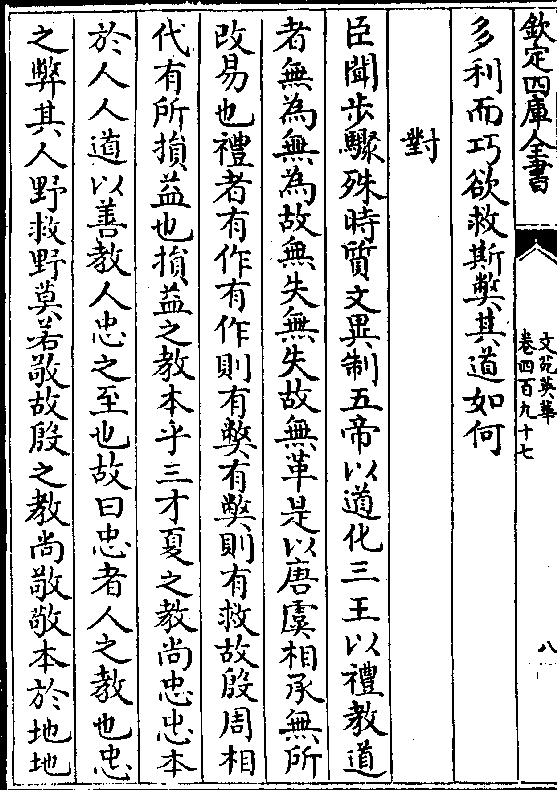 欽定四庫全書
文苑英華
卷四百九十七
八
多利而巧欲救斯弊其道如何
對
臣聞步驟殊時質文異制五帝以道化三王以禮教道
者無為無為故無失無失故無革是以唐虞相承無所
改易也禮者有作有作則有弊有弊則有救故殷周相
代有所損益也損益之教本乎三才夏之教尚忠忠本
於人人道以善教人忠之至也故曰忠者人之教也忠
之弊其人野救野莫若敬故殷之教尚敬敬本於地地